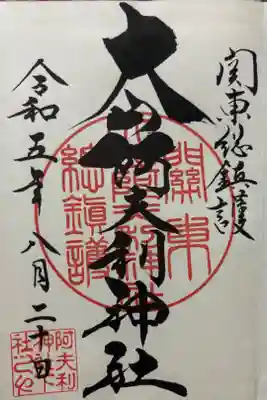 関東総鎮護
大山阿夫利神社
令和五年八月二十日
關東
總鎮護
阿夫利
神社下
社